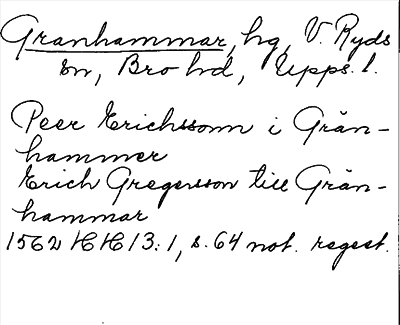 Granhammar, hg, V. Ryds
sn, Bro hd, Upps. l.
Peer Erichssonn i Grän-
hammer
Erich Gregersson till Grän-
hammar
1562 HH 13:1, s. 64 not. regest.